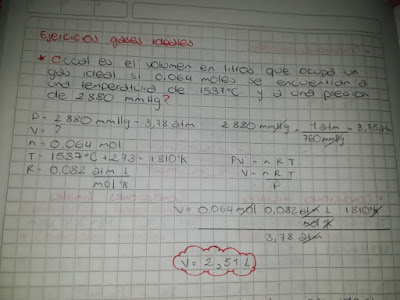 Ejercicios gases ideales
* ¿Cual es el volumen en litros que ocupa un
gas ideal si 0.064 moles se encuentran a
una temperatura de 1537°C y a una presion
de 2880 mmHg?
P = 2880 mmHg - 3,78 atm 2880 mmHg x 1 atm = 3,78 atm
760 mmHg
V = ?
n = 0.064 mol
T = 1537°C + 273 = 1810°K PV = nRT
R = 0.082 atm L V = nRT
mol °K P
V = 0.064 mol 0.082 atm L 1810°K
mol °K
3,78 atm
V = 2,51 L